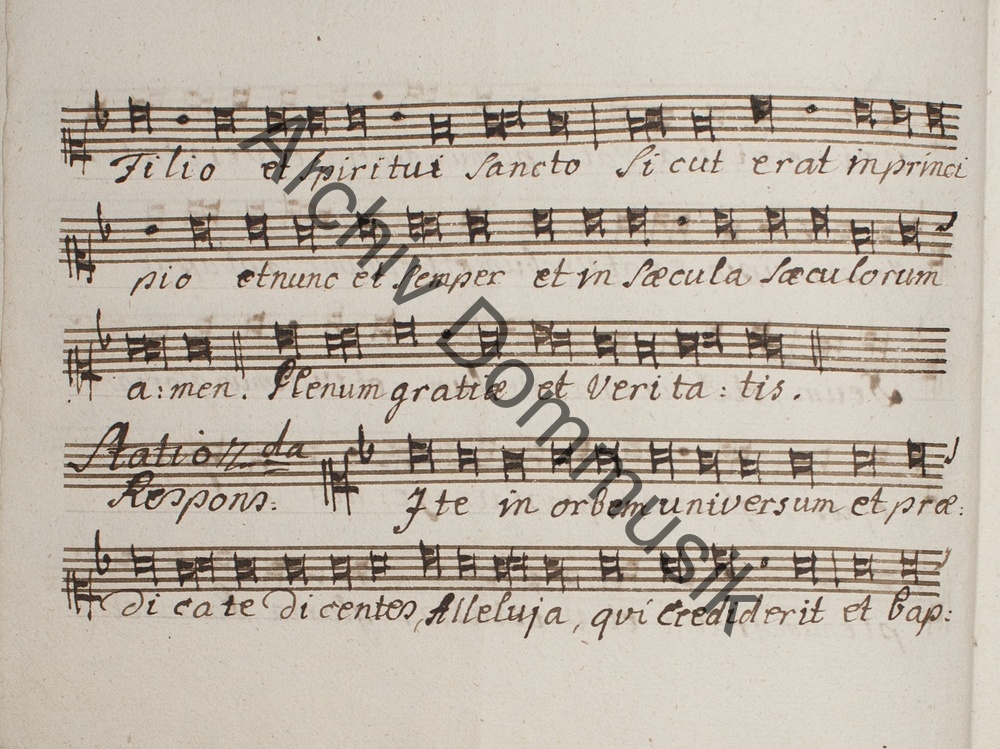 Filio et Spiritui Sancto Sicut erat in princi
pio et nunc et Semper et in Sæcula Sæculorum
a:men. Plenum gratiæ et Verita:tis.
Statio II.da
Respons: Ite in orbem universum et præ:
dicate dicentes, Alleluja, qui Crediderit et bap:
Archiv Dommusik